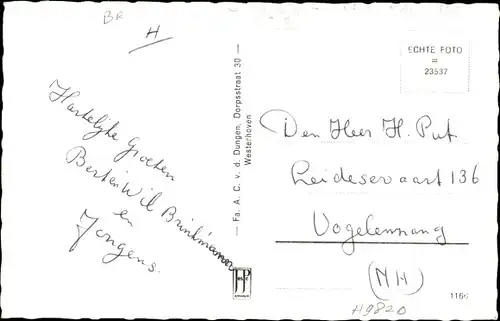 BR
H
Hartelijke Groeten
Bert en Wil Brinkman
en
Jongens.
— Fa. A. C. v. d. Dungen, Dorpsstraat 30 —
Westerhoven
ECHTE FOTO
=
23537
Den Heer H. Put
Leidesevaart 136
Vogelenzang
(NH)
1166
H9820